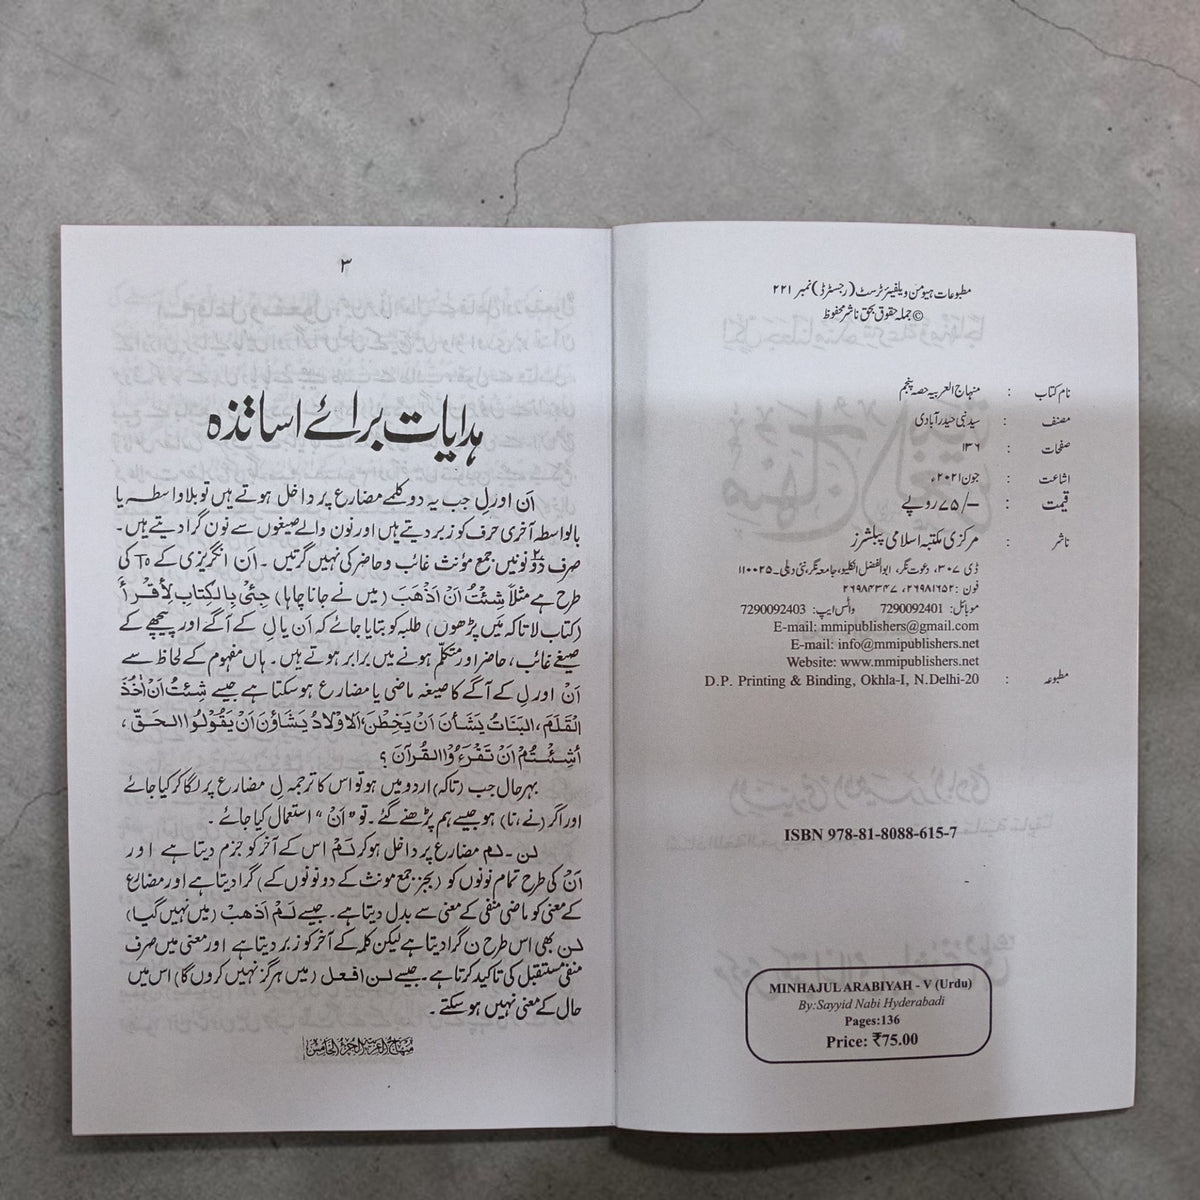 مطبوعات ہیومن ویلفیئر ٹرسٹ (رجسٹرڈ) نمبر ۲۲۱
© جملہ حقوق بحق ناشر محفوظ
نام کتاب : منہاج العربیہ حصہ پنجم
مصنف : سید نبی حیدرآبادی
صفحات : ۱۳۶
اشاعت : جون ۲۰۲۱ء
قیمت : ۷۵/– روپے
ناشر : مرکزی مکتبہ اسلامی پبلشرز
ڈی ۳۰۷، دعوت نگر، ابوالفضل انکلیو، جامعہ نگر، نئی دہلی۔ ۱۱۰۰۲۵
فون: ۲۶۹۸۱۶۵۲، ۲۶۹۸۴۳۴۷
موبائل: 7290092401 واٹس ایپ: 7290092403
E-mail: mmipublishers@gmail.com
E-mail: info@mmipublishers.net
Website: www.mmipublishers.net
مطبوعہ : D.P. Printing & Binding, Okhla-I, N.Delhi-20
ISBN 978-81-8088-615-7
MINHAJUL ARABIYAH - V (Urdu)
By:Sayyid Nabi Hyderabadi
Pages:136
Price: ₹75.00
۳
ہدایات برائے اساتذہ
اَن اور لِ جب یہ دو کلمے مضارع پر داخل ہوتے ہیں تو بلا واسطہ یا
بالواسطہ آخری حرف کو زبر دیتے ہیں اور نون والے صیغوں سے نون گرا دیتے ہیں۔
صرف دو نونیں جمع مؤنث غائب و حاضر کی نہیں گرتیں۔ اَن انگریزی کے To کی
طرح ہے مثلاً شِئْتُ اَنْ اَذْهَبَ (میں نے جانا چاہا) جِئْ بِالْکِتَابِ لِأَقْرَأَ
(کتاب لا تاکہ میں پڑھوں) طلبہ کو بتایا جائے کہ اَن یا لِ کے آگے اور پیچھے کے
صیغے غائب، حاضر اور متکلّم ہونے میں برابر ہوتے ہیں۔ ہاں مفہوم کے لحاظ سے
اَنْ اور لِ کے آگے کا صیغہ ماضی یا مضارع ہو سکتا ہے جیسے شِئْتُ اَنْ اٰخُذَ
الْقَلَمَ، البَنَاتُ یَشَأْنَ اَنْ یَخِطْنَ، اَلْاَوْلَادُ یَشَاؤُنَ اَنْ یَقُوْلُوا الْحَقَّ،
أَشِئْتُمْ اَنْ تَقْرَءُوا الْقُرآنَ؟
بہرحال جب (تاکہ) اردو میں ہو تو اس کا ترجمہ لِ مضارع پر لگا کر کیا جائے
اور اگر (نے، نا) ہو جیسے ہم پڑھنے گئے۔ تو "اَنْ" استعمال کیا جائے۔
لن۔ لم مضارع پر داخل ہو کر لَمْ اس کے آخر کو جزم دیتا ہے اور
اَنْ کی طرح تمام نونوں کو (بجز جمع مونث کے دو نونوں کے) گرا دیتا ہے اور مضارع
کے معنی کو ماضی منفی کے معنی سے بدل دیتا ہے۔ جیسے لَمْ اَذْهَبْ (میں نہیں گیا)
لن بھی اس طرح ن گرا دیتا ہے لیکن کلمہ کے آخر کو زبر دیتا ہے اور معنی میں صرف
منفی مستقبل کی تاکید کرتا ہے۔ جیسے لن افعل (میں ہرگز نہیں کروں گا) اس میں
حال کے معنی نہیں ہو سکتے۔
منهاج العربية الجزء الخامس